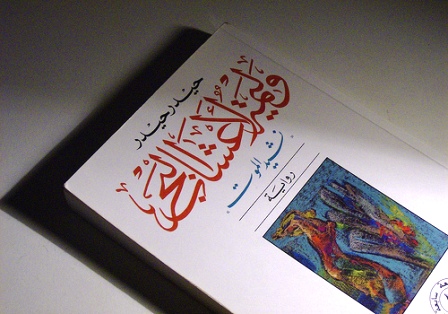 حيدر حيدر
وليمة لأعشاب البحر
نشيد الموت
رواية